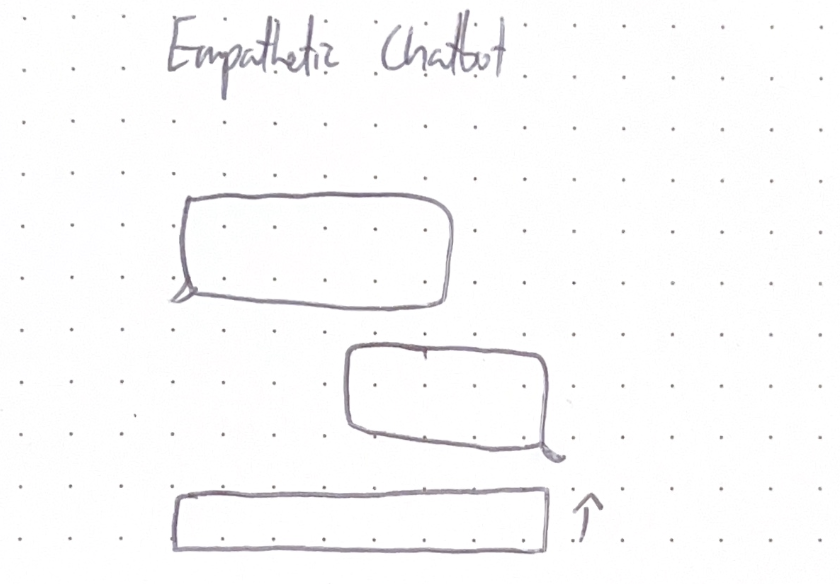 Empathetic Chatbot